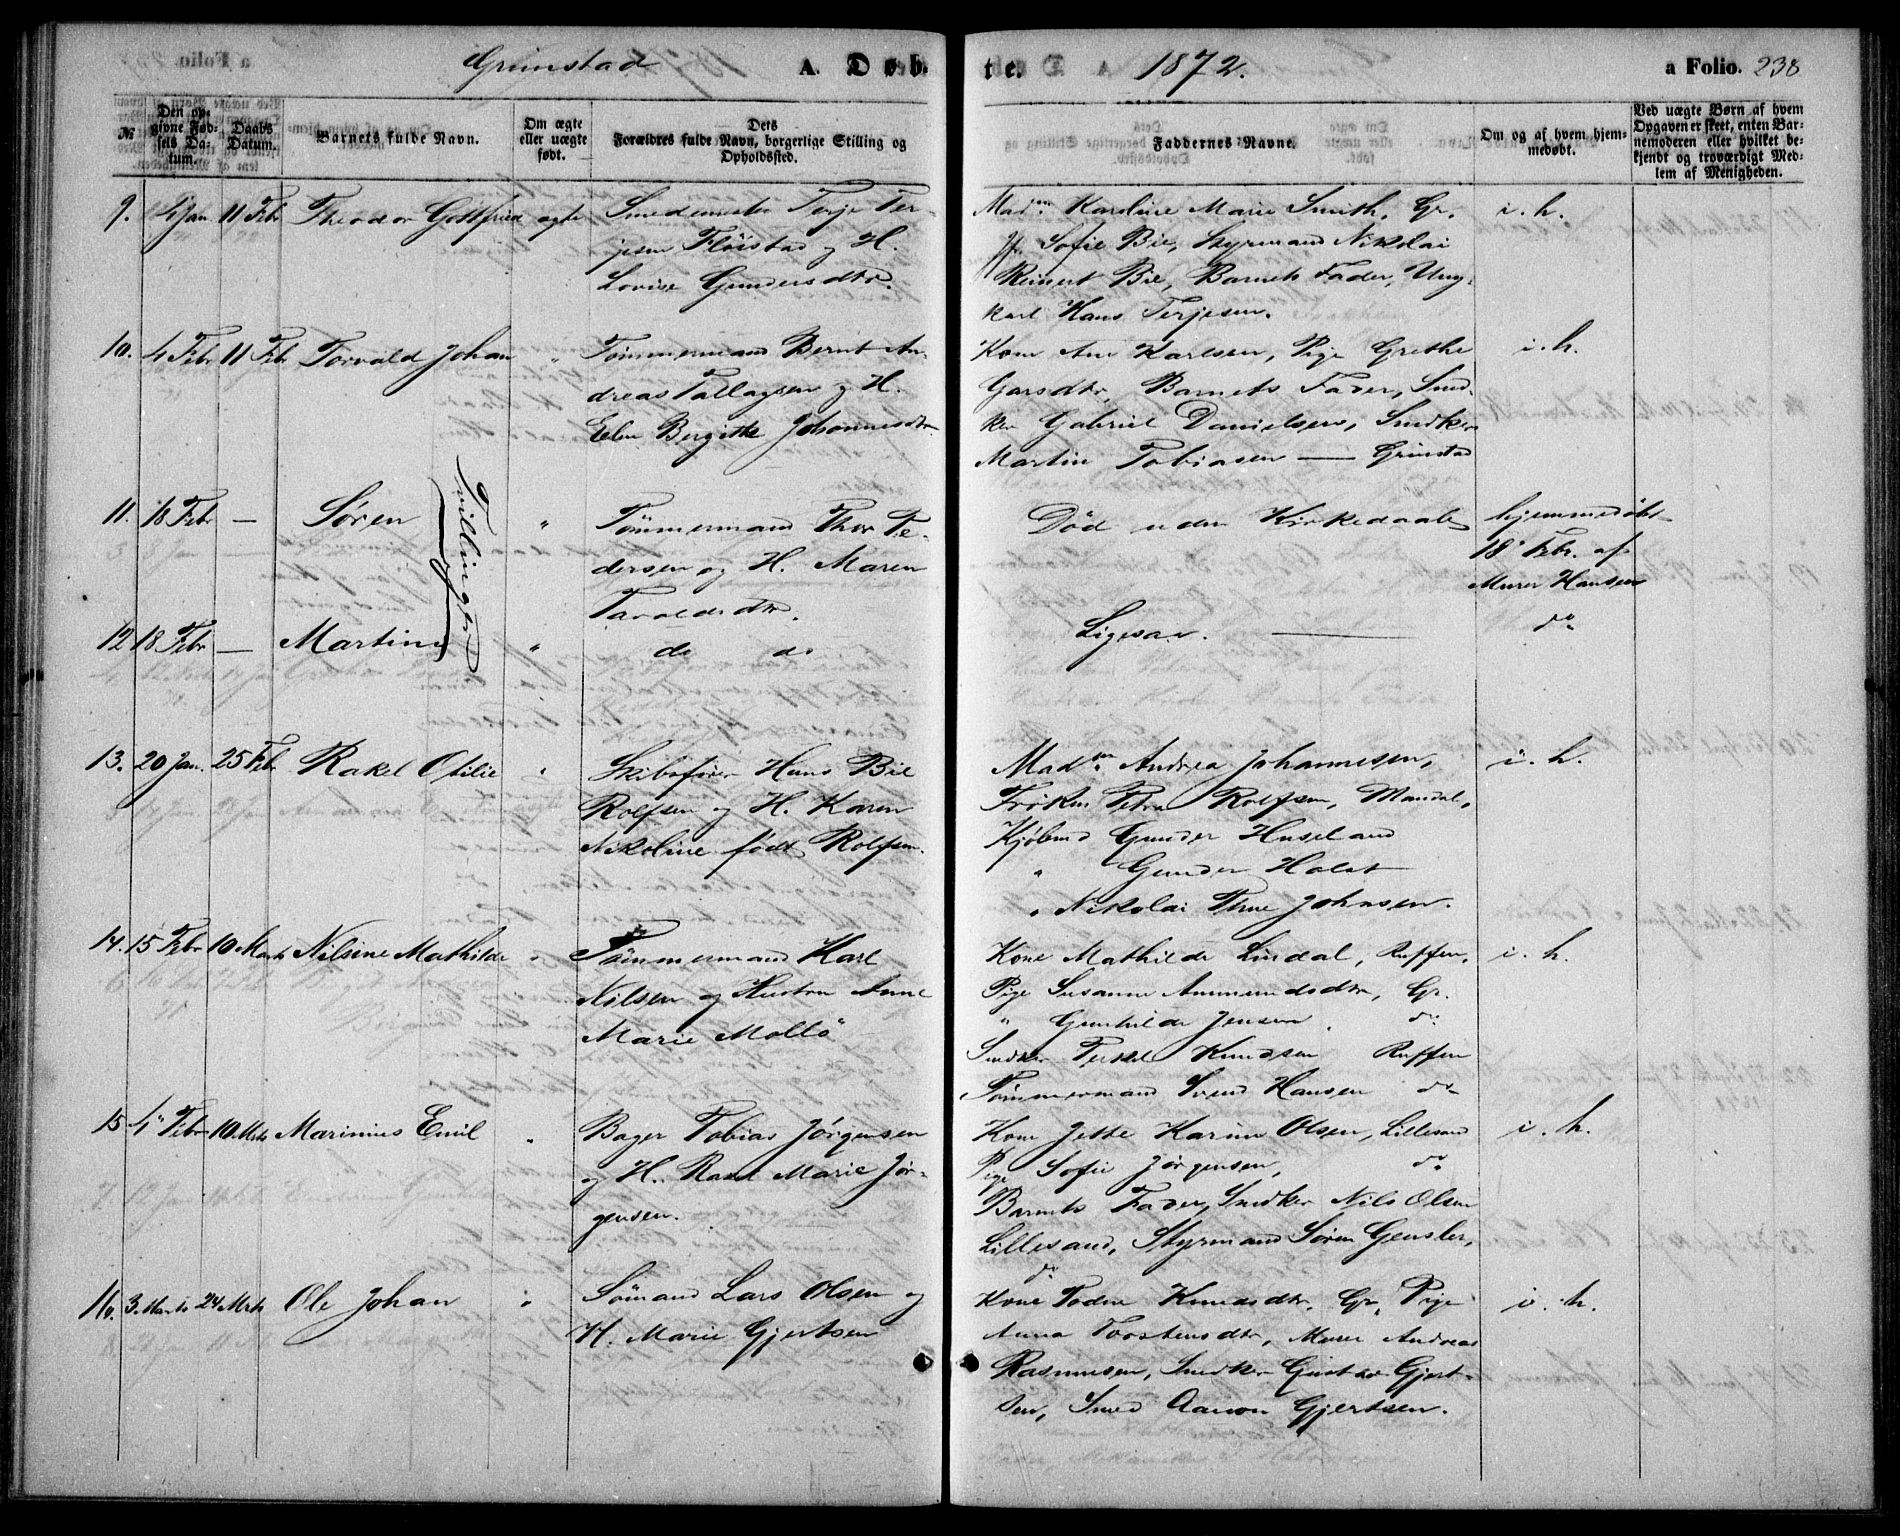 Grimstad A. Døbte. 1872. a Folio. 238
№
Den opgivne Fødsels Datum.
Daabs Datum.
Barnets fulde Navn.
Om ægte eller uægte født.
Dets Forældres fulde Navn, borgerlige Stilling og Opholdssted.
Faddernes Navne.
Om og af hvem hjemmedøbt.
Ved uægte Børn af hvem Opgaven er skeet, enten Barnemoderen eller hvilket bekjendt og troværdigt Medlem af Menigheden.
9. 4 Jan 11 Febr Theodor Gottfried ægte
Smedemester Terje Ter-
jesen Fløistad og H.
Lovise Gundersdtr.
Madm. Karoline Marie Smith, Gr.
Jf. Sofie Bie, Styrmand Nikolai
Reinert Bie, Barnets Fader, Ung-
karl Hans Terjesen.
i. h.
10. 4 Febr 11 Febr Torvald Johan "
Tømmermand Bernt An-
dreas Tallagsen og H.
Elen Bergitte Johannesdtr.
Kone Ane Karlsen, Pige Grethe
Garsdtr, Barnets Fader, Snd-
ker Gabriel Danielsen, Sndker
Martin Tobiasen — Grimstad
i. h.
11. 18 Febr — Søren "
Tvillinger
Tømmermand Thor Pe-
dersen og H. Maren
Taraldsdtr.
Død uden Kirkedaab
hjemmedøbt
18 Febr. af
Murer Hansen
12 18 Febr — Martin "
do do
Ligesaa. —
do
13. 20 Jan. 25 Febr Rakel Otilie "
Skibsfører Hans Bie
Rolfsen og H. Karen
Nikoline født Rolfsen.
Madm. Andrea Johannesen,
Frøken Petra Rolfsen, Mandal,
Kjøbmd Gunder Huseland
" Gunder Holst
" Nikolai Thne Johnsen.
i. h.
14. 15 Febr 10 Marts Nilsine Mathilde "
Tømmermand Karl
Nilsen og Hustru Anne
Marie Mollø
Kone Mathilde Lindal, Ruffen,
Pige Susanne Ammundsdtr, Gr.
" Gunhilde Jensen, do
Sndker Terkel Knudsen Ruffen
Tømmermand Svend Hansen do
i. h.
15 4 Febr 10 Mrts Marinius Emil "
Bager Tobias Jørgensen
og H. Rakel Marie Jør-
gensen.
Kone Jette Karine Olsen, Lillesand
Pige Sofie Jørgensen, do
Barnets Fader, Sndker Nils Olsen
Lillesand, Styrmand Søren Gensler,
do
i. h.
16. 3. Marts 24 Mrts Ole Johan "
Sømand Lars Olsen og
H. Marie Gjertsen
Kone Todne Knudsdtr. Gr, Pige
Anna Torstensdtr, Murer Andreas
Rasmussen, Sndker Gustav Gjert-
sen, Smed Aanon Gjertsen.
i. h.